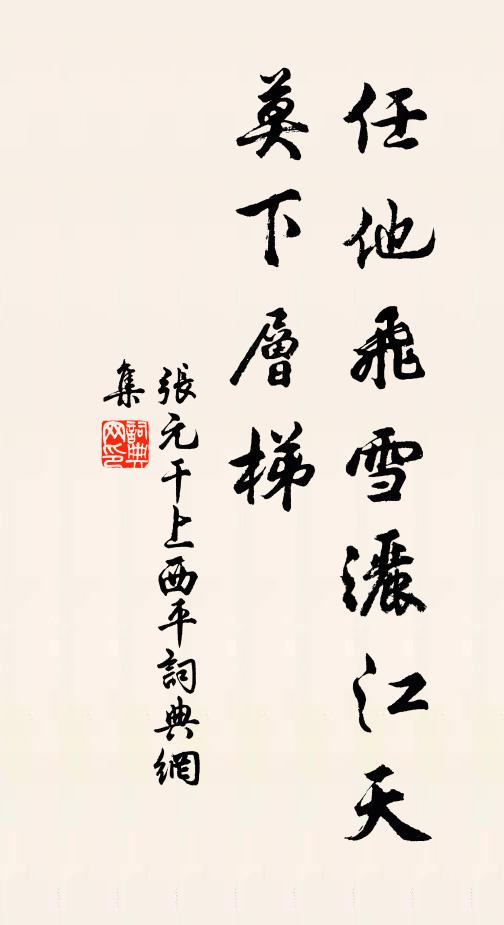 任他飛雪灑江天
莫下層梯
張元干上西平詞典網
集
詞典
网印